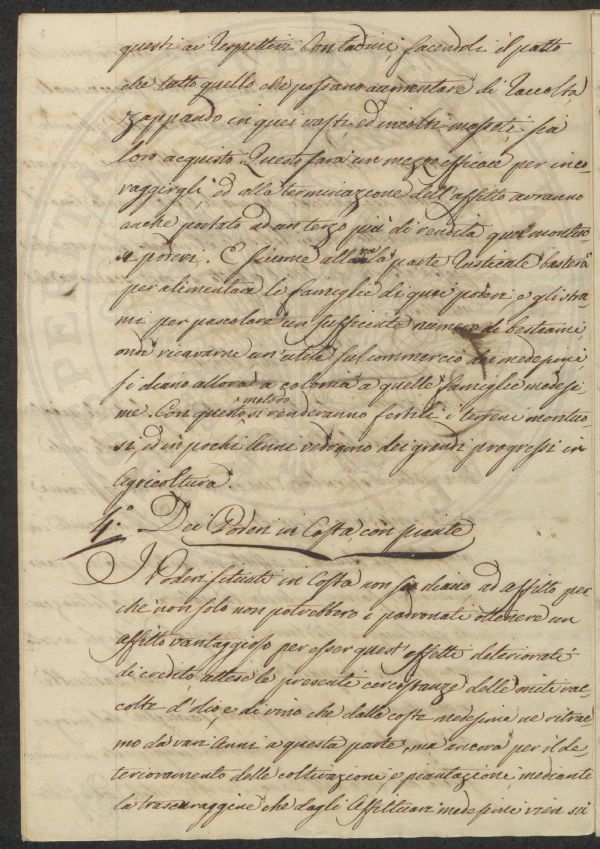 questi ai respettivi Contadini, facendoli il patto
che tutto quello che possano aumentare di raccolta,
zappando in quei vasti ed incolti mossoti sia
loro acquisto. Questo sarà un mezzo efficace per inco-
raggirgli, ed alla terminazione dell'affitto avranno
anche portato ad un terzo più di rendita quei montuo-
si poderi. E siccome allora la parte rusticale basterà
per alimentare le famiglie di quei poderi, e gli stra-
mi per pascolare un sufficiente numero di bestiami
onde ricavarne un'utile sul commercio dei medesimi,
si diano allora a colonia a quelle famiglie medesi-
me. Con questo metodo si renderanno fertili i terreni montuo-
si, ed in pochi anni vedranno dei grandi progressi in
Agricoltura.
4.° Dei Poderi in Costa con piante
I Poderi situati in Costa non si diano ad affitto per
che non solo non potrebbero i padronali ottenere un
affitto vantaggioso per esser questi effetti deteriorati
di credito, attese le presenti circostanze delle miti rac-
colte d'olio, e di vino che dalle coste medesime ne ritrag-
mo da vari Anni a questa parte, ma ancora per il de-
terioramento delle coltivazioni, e piantazioni, mediante
la trascuraggine che dagli Affittuari medesimi vien su